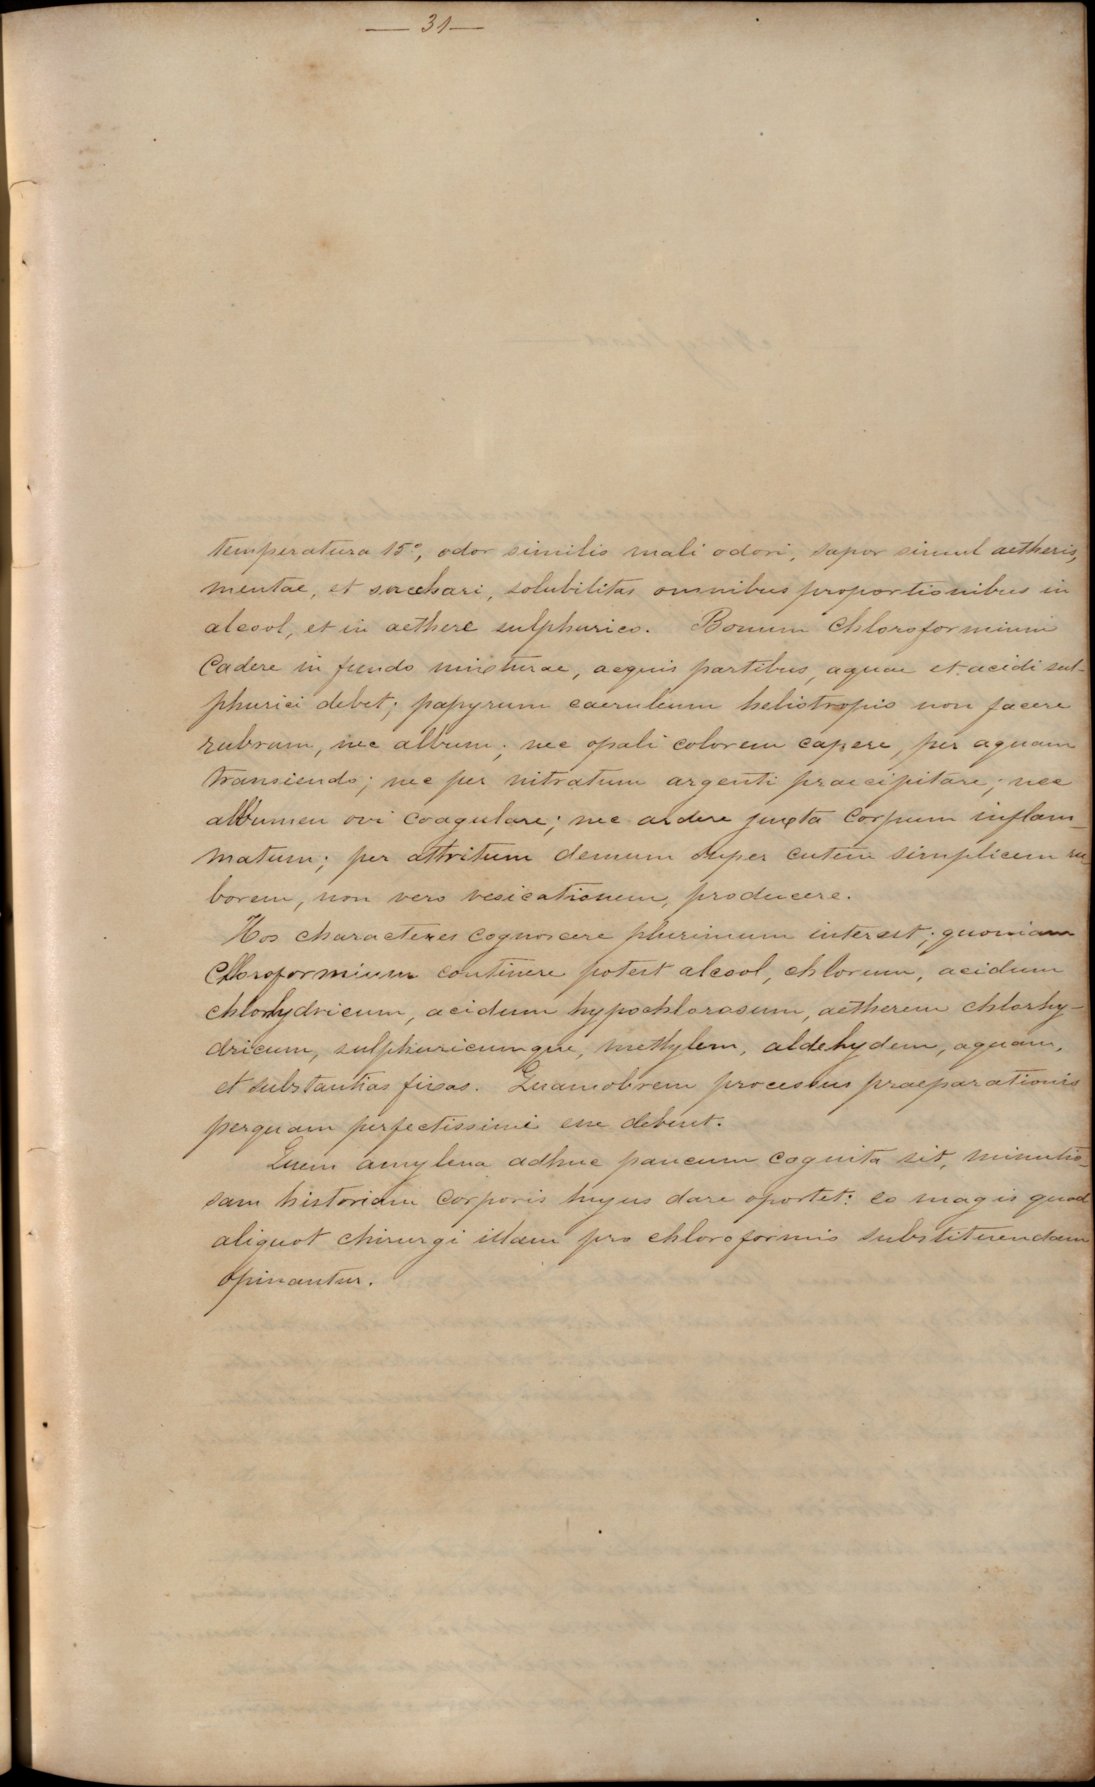 — 31 —
temperatura 15°, odor similis mali odori, sapor simul aetheris,
mentae, et sacchari, solubilitas omnibus proportionibus in
alcool, et in aethere sulphurico. Bonum Chloroformium
Cadere in fundo mixturae, aequis partibus, aquae et acidi sul-
phurici debet; papyrum caeruleum heliotropio non facere
rubrum, nec album; nec opali colorem capere, per aquam
transiendo; nec per nitratum argenti praecipitare; nec
albumen ovi coagulare; nec ardere juxta corpum inflam-
matum; per attritum demum super cutem simplicem ru-
borem, non vero vesicationem, producere.
Hos characteres cognoscere plurimum interest; quoniam
Chloroformium continere potest alcool, chlorum, acidum
chlorhydricum, acidum hypochlorosum, aetherem chlorhy-
dricum, sulphuricumque, methylem, aldehydem, aquam,
et substantias fixas. Quamobrem processus praeparationis
perquam perfectissimi esse debent.
Quem amylena adhuc paucum cognita sit, minutio-
sam historiam corporis hujus dare oportet: eo magis quod
aliquot chirurgi illam pro chloroformio substituendam
opinantur.